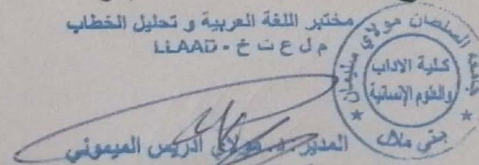 مختبر اللغة العربية و تحليل الخطاب
م ل ع ت خ - LLAAD
جامعة السلطان مولاي سليمان
كلية الاداب
والعلوم الإنسانية
بني ملال
المدير : د. مولاي ادريس الميموني